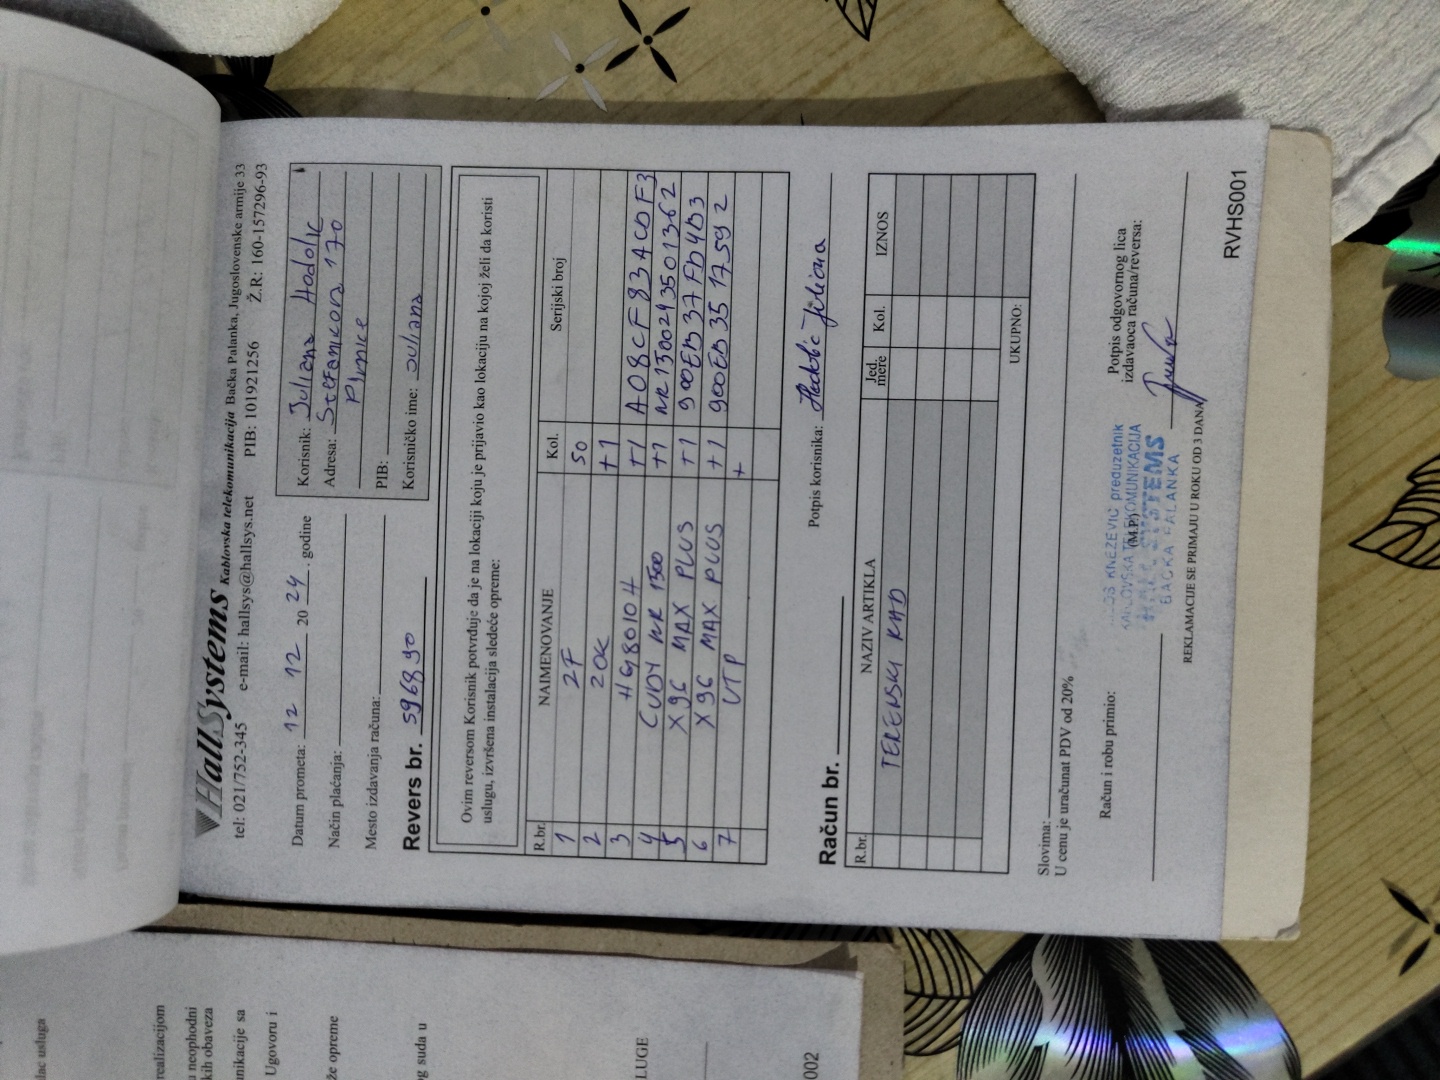 HallSystems Kablovska telekomunikacija Bačka Palanka, Jugoslovenske armije 33
tel: 021/752-345 e-mail: hallsys@hallsys.net PIB: 101921256 Ž.R: 160-157296-93
Datum prometa: 12 12 2024. godine
Način plaćanja:
Mesto izdavanja računa:
Korisnik: Juliana Hodolic
Adresa: Stefanikova 170
Pivnice
PIB:
Korisničko ime: Juliana
Revers br. 596890
Ovim reversom Korisnik potvrđuje da je na lokaciji koju je prijavio kao lokaciju na kojoj želi da koristi
uslugu, izvršena instalacija sledeće opreme:
R.br. NAIMENOVANJE Kol. Serijski broj
1 2F 50
2 ZOK +1
3 HG8010H +1 A08CF834CDF3
4 CUDY WR 1300 +1 WR1300243501362
5 X96 MAX PLUS +1 900EB37FD4B3
6 X96 MAX PLUS +1 900EB3517592
7 UTP +
Potpis korisnika: Hodolić Juliana
Račun br.
R.br. NAZIV ARTIKLA Jed. mere Kol. IZNOS
TERENSKI RAD
UKUPNO:
Slovima:
U cenu je uračunat PDV od 20%
Račun i robu primio:
KNEŽEVIĆ preduzetnik
KABLOVSKA TELEKOMUNIKACIJA
(M.P.)
SYSTEMS
BAČKA PALANKA
Potpis odgovornog lica
izdavaoca računa/reversa:
REKLAMACIJE SE PRIMAJU U ROKU OD 3 DANA
RVHS001
lac usluga
realizacijom
u neophodni
kih obaveza
nikacije sa
Ugovoru i
že opreme
g suda u
LUGE
002